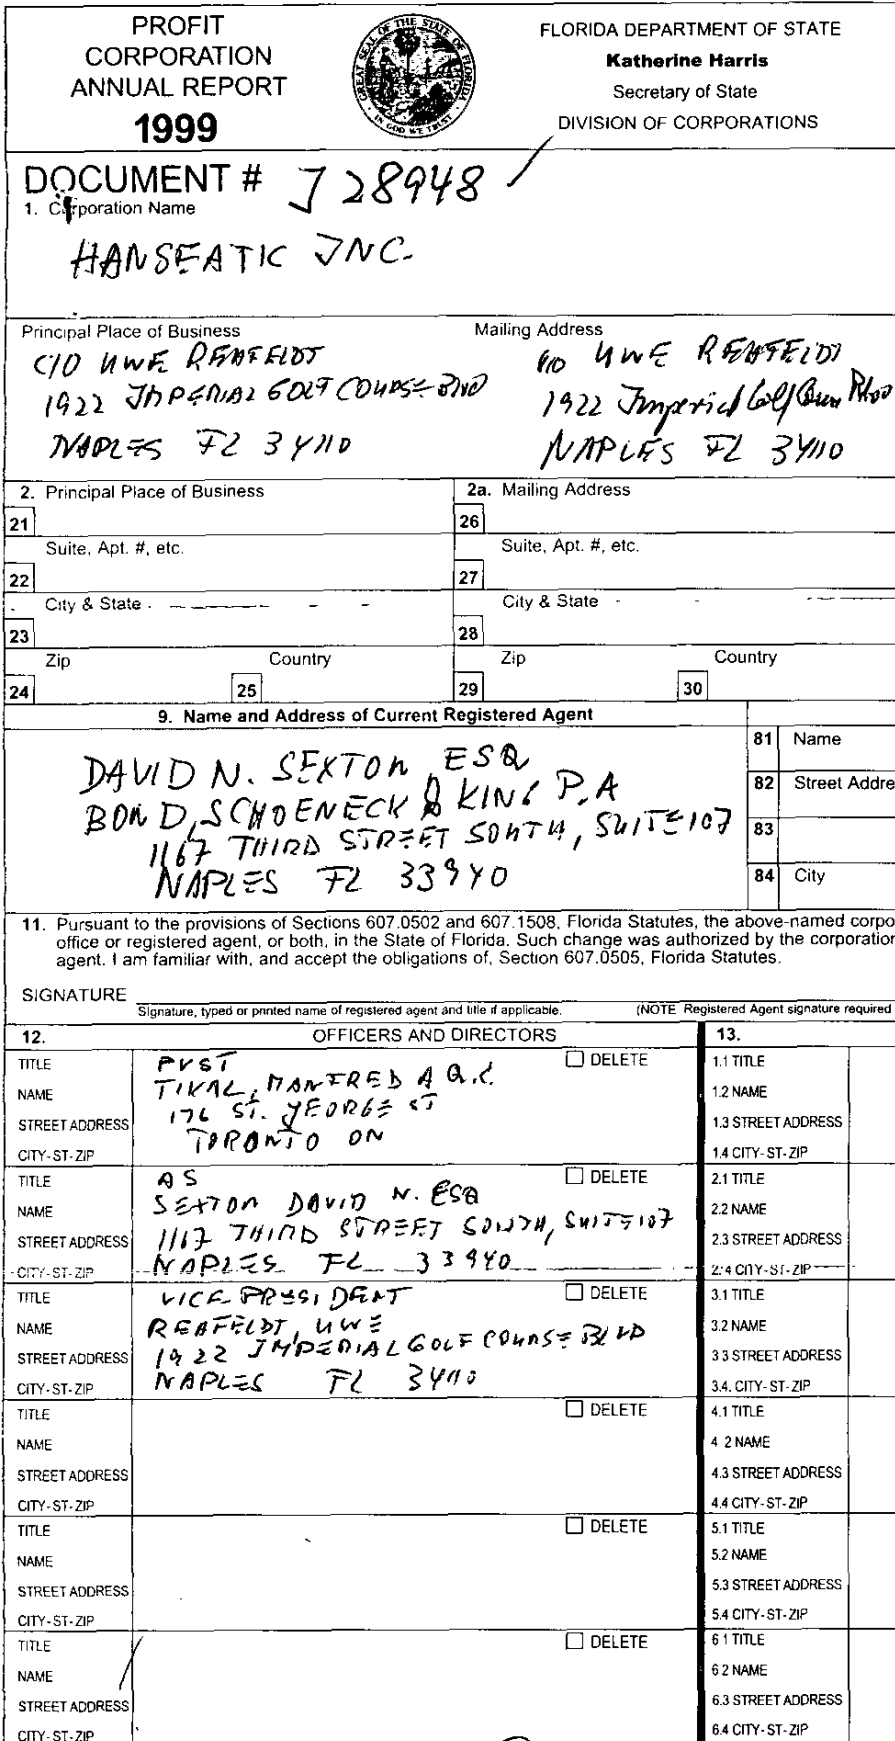 PROFIT
CORPORATION
ANNUAL REPORT
1999
GREAT SEAL OF THE STATE OF FLORIDA
IN GOD WE TRUST
FLORIDA DEPARTMENT OF STATE
Katherine Harris
Secretary of State
DIVISION OF CORPORATIONS
DOCUMENT # J 28948
1. Corporation Name
HANSEATIC INC.
Principal Place of Business
C/O UWE REHFELDT
1922 IMPERIAL GOLF COURSE BLVD
NAPLES FL 34110
Mailing Address
c/o UWE REHFELDT
1922 Imperial Golf Course
NAPLES FL 34110
2. Principal Place of Business
2a. Mailing Address
21
26
Suite, Apt. #, etc.
Suite, Apt. #, etc.
22
27
City & State
City & State
23
28
Zip
Country
Zip
Country
24
25
29
30
9. Name and Address of Current Registered Agent
DAVID N. SEXTON ESQ
BOND, SCHOENECK & KING P.A
1167 THIRD STREET SOUTH, SUITE 107
NAPLES FL 33940
81 Name
82 Street Addre
83
84 City
11. Pursuant to the provisions of Sections 607.0502 and 607.1508, Florida Statutes, the above-named corpo
office or registered agent, or both, in the State of Florida. Such change was authorized by the corporation
agent. I am familiar with, and accept the obligations of, Section 607.0505, Florida Statutes.
SIGNATURE
Signature, typed or printed name of registered agent and title if applicable.
(NOTE Registered Agent signature required
12.
OFFICERS AND DIRECTORS
13.
TITLE PVST DELETE
NAME TIKAL, MANFRED A Q.C.
STREET ADDRESS 176 ST. GEORGE ST
CITY-ST-ZIP TORONTO ON
1.1 TITLE
1.2 NAME
1.3 STREET ADDRESS
1.4 CITY-ST-ZIP
TITLE AS DELETE
NAME SEXTON DAVID N. ESQ
STREET ADDRESS 1167 THIRD STREET SOUTH, SUITE 107
CITY-ST-ZIP NAPLES FL 33940
2.1 TITLE
2.2 NAME
2.3 STREET ADDRESS
2.4 CITY-ST-ZIP
TITLE VICE PRESIDENT DELETE
NAME REHFELDT, UWE
STREET ADDRESS 1922 IMPERIAL GOLF COURSE BLVD
CITY-ST-ZIP NAPLES FL 34110
3.1 TITLE
3.2 NAME
3 3 STREET ADDRESS
3.4. CITY-ST-ZIP
TITLE DELETE
NAME
STREET ADDRESS
CITY-ST-ZIP
4.1 TITLE
4 2 NAME
4.3 STREET ADDRESS
4.4 CITY-ST-ZIP
TITLE DELETE
NAME
STREET ADDRESS
CITY-ST-ZIP
5.1 TITLE
5.2 NAME
5.3 STREET ADDRESS
5.4 CITY-ST-ZIP
TITLE DELETE
NAME
STREET ADDRESS
CITY-ST-ZIP
6 1 TITLE
6 2 NAME
6.3 STREET ADDRESS
6.4 CITY-ST-ZIP